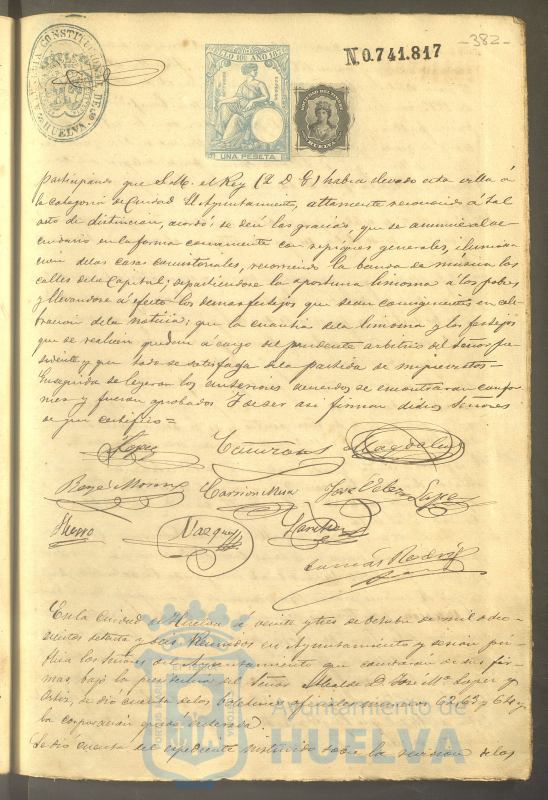 ALCALDIA CONSTITUCIONAL DE HUELVA
SELLO 10º AÑO 187
UNA PESETA
HUELVA
N.0.741.817
-382-
participando que S.M. el Rey (q D G) habia elevado esta villa á
la categoria de Ciudad El Ayuntamiento, altamente reconocido á tal
acto de distincion, acordó se den las gracias, que se anuncie al ve
cindario en la forma conveniente con repiques generales, ilumina
cion de las casas consistoriales, recorriendo la banda de música las
calles de la Capital; repartiendose la oportuna limosna á los pobres
y llevandose á efecto los demas festejos que sean consiguientes en cele
bracion de la noticia; que la cuantia de la limosna y los festejos
que se realicen queden á cargo del prudente arbitrio del Señor Pre
sidente y que todo se satisfaga de la partida de imprevistos=
Enseguida se leyeron los anteriores acuerdos se encontraron confor
mes y fueron aprobados Y de ser asi firman dichos Señores
de que certifico=
Lopez Magdalena
Moreno Jose Lopez
Hierro Vazquez
Tomás
En la Ciudad de Huelva á veinte y tres de Octubre de mil ocho
cientos setenta y seis Reunidos en Ayuntamiento y sesion pú
blica los Señores del Ayuntamiento que constarán de sus fir
mas, bajo la presidencia del Señor Alcalde D. José Mª Lopez y
Ortiz, se dió cuenta de los boletines oficiales numeros 62, 63 y 64 y
la corporacion quedó enterada.
Se dió cuenta del espediente instruido sobre la de los
Ayuntamiento de
HUELVA